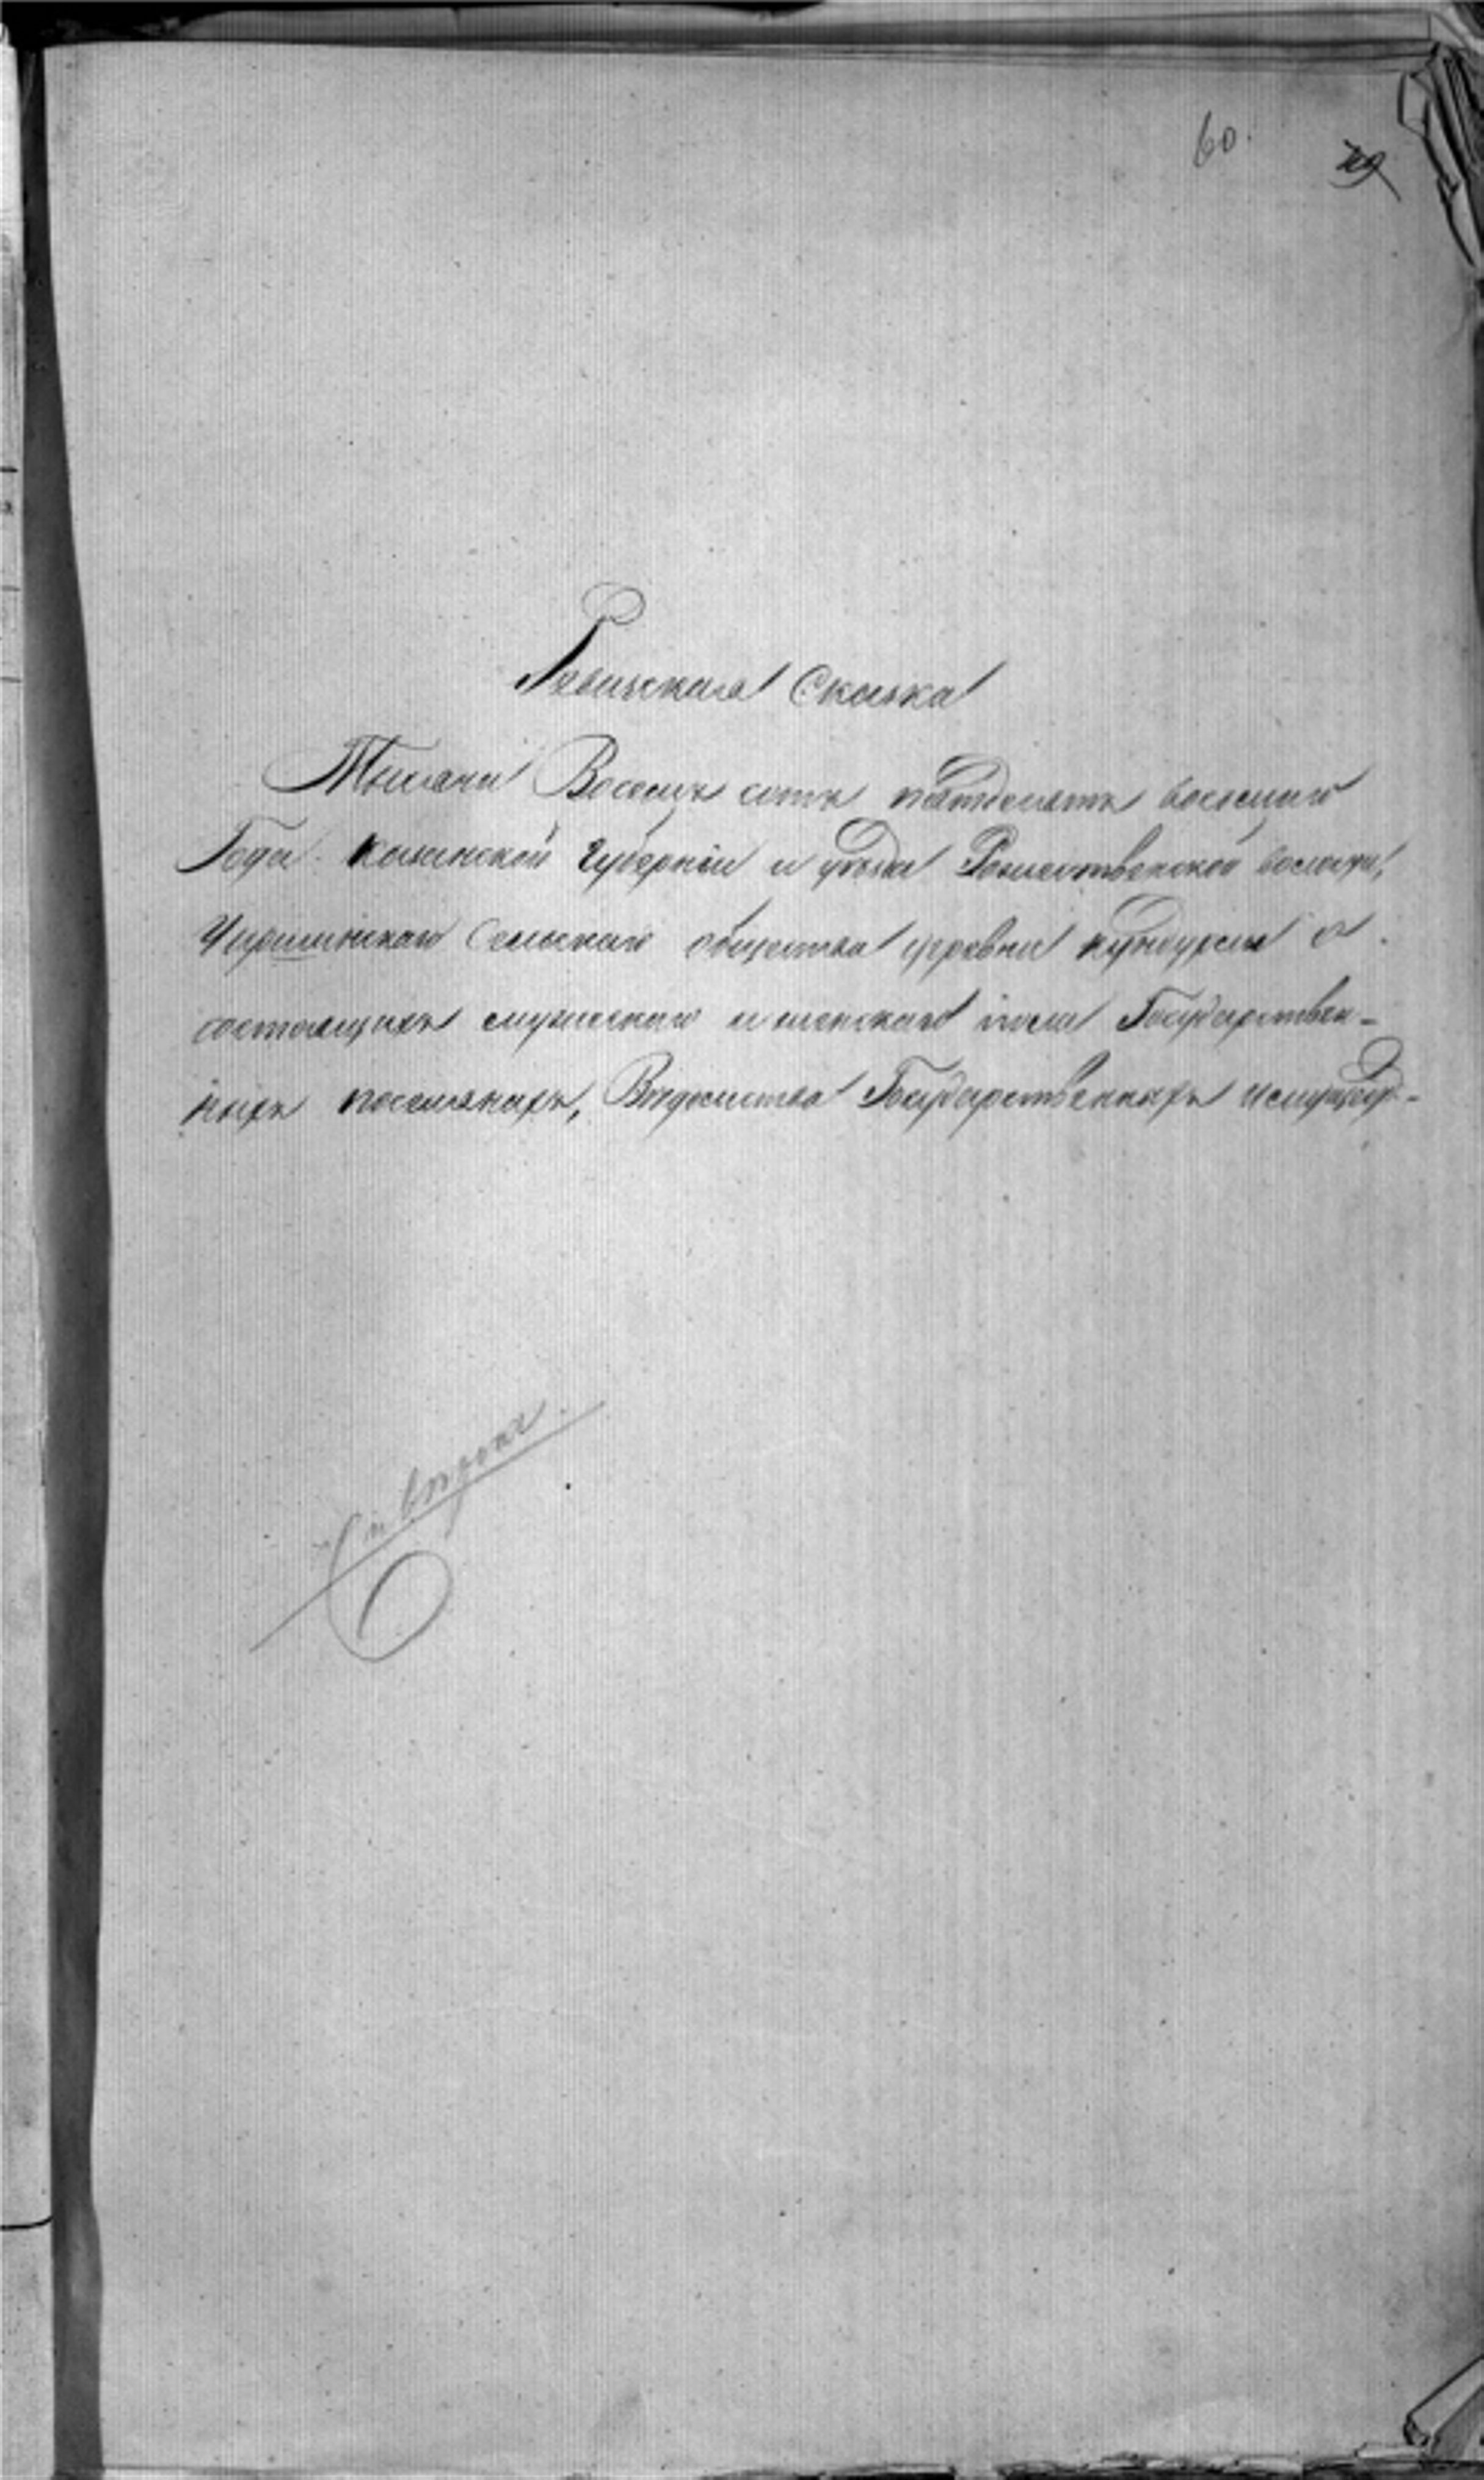 60.
Ревизская Сказка
Тысяча Восемь сотъ пятдесятъ восьмаго
Года Казанской Губерніи и уѣзда Рожественской волости,
Чиршинскаго Сельскаго общества деревни о
состоящихъ мужескаго и женскаго пола Государствен-
ныхъ поселянахъ, Вѣдомства Государственныхъ имуществ-